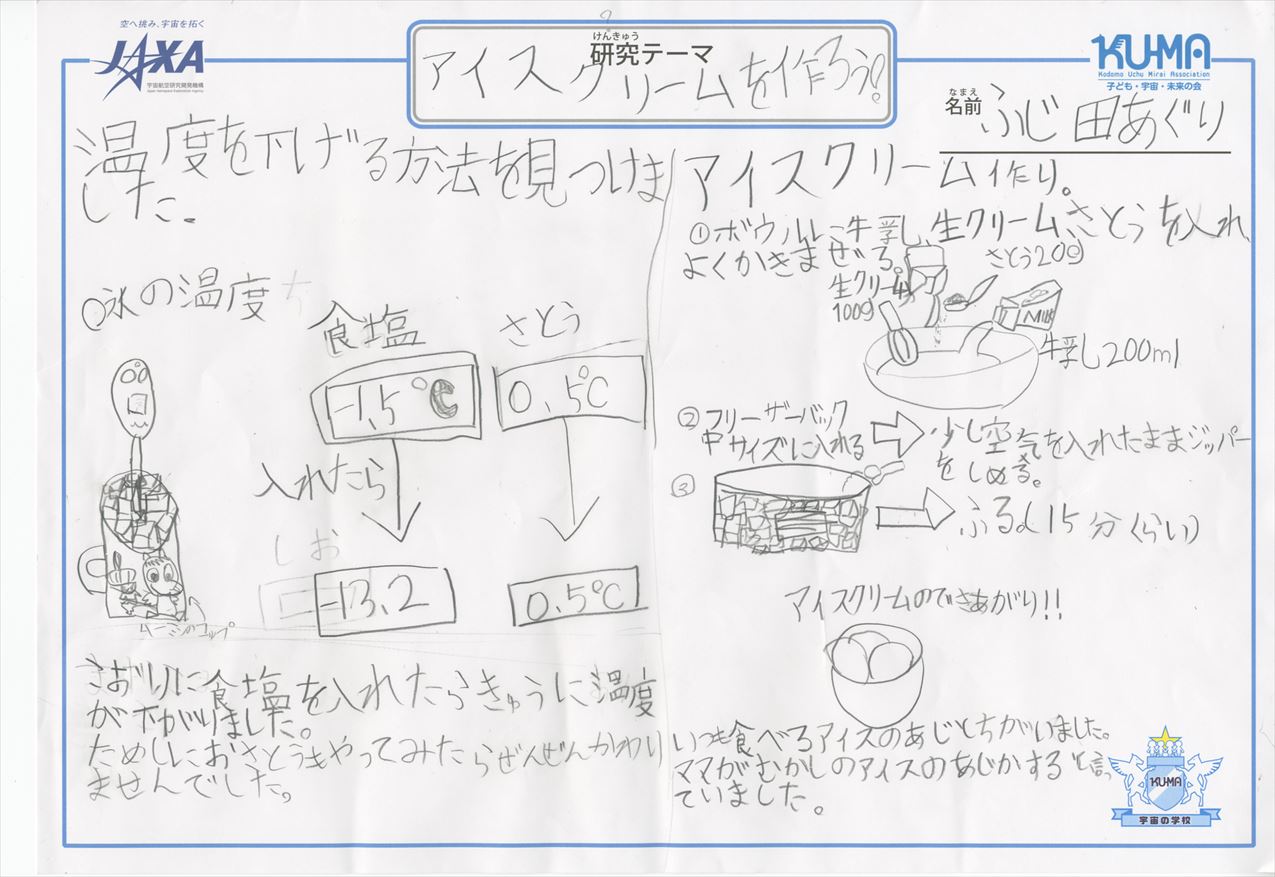 空へ挑み、宇宙を拓く
JAXA
宇宙航空研究開発機構
Japan Aerospace Exploration Agency
けんきゅう
研究テーマ
アイスクリームを作ろう!
KU-MA
Kodomo Uchu Mirai Association
子ども・宇宙・未来の会
なまえ
名前
ふじ田あぐり
温度を下げる方法を見つけま
した。
○氷の温度
食塩
さとう
-1.5℃
0.5℃
入れたら
しお
-13.2
0.5℃
ムーミンのコップ
こおりに食塩を入れたらきゅうに温度
が下がりました。
ためしにおさとうもやってみたらぜんぜんかわり
ませんでした。
アイスクリーム作り。
①ボウルに牛乳、生クリーム、さとうを入れ、
よくかきまぜる。
さとう20g
生クリーム
100g
MILK
牛乳200ml
②フリーザーバック
中サイズに入れる
少し空気を入れたままジッパー
をしめる。
③
ふる。(15分くらい)
アイスクリームのできあがり!!
いつも食べるアイスのあじとちがいました。
ママがむかしのアイスのあじがすると言っ
ていました。
KU-MA
宇宙の学校